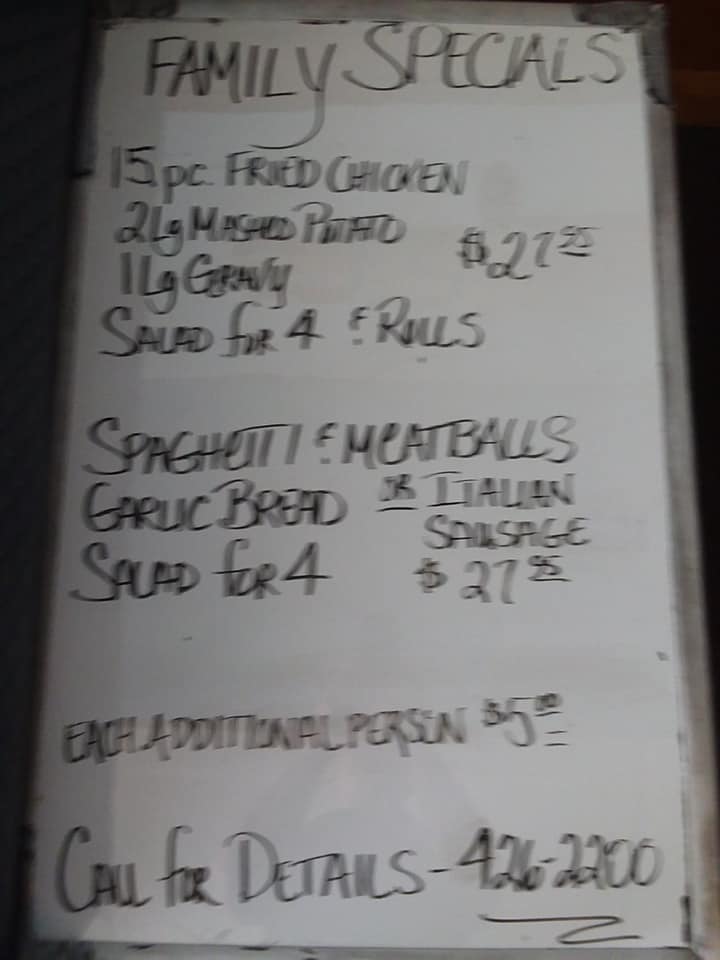 FAMILY SPECIALS
15 pc. FRIED CHICKEN
2 Lg MASHED POTATO
$27 95
1 Lg GRAVY
SALAD for 4 & ROLLS
SPAGHETTI & MEATBALLS
GARLIC BREAD OR ITALIAN
SAUSAGE
SALAD for 4 $27 95
EACH ADDITIONAL PERSON $5 00
CALL for DETAILS - 426-2200